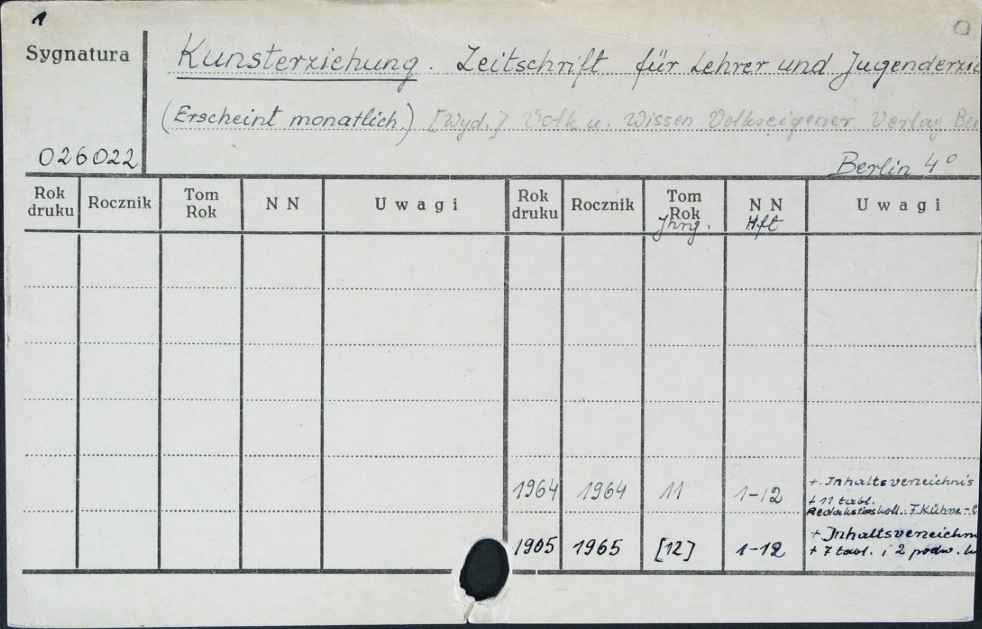 1
Sygnatura
Kunsterziehung. Zeitschrift für Lehrer und Jugenderzie
(Erscheint monatlich.) [Wyd.] Volk u. Wissen Volkseigener Verlag Be
026022
Berlin 4°
Rok druku Rocznik Tom Rok N N Uwagi Rok druku Rocznik Tom Rok N N Uwagi
Jhrg. Hft
1964 1964 11 1-12 + Inhaltsverzeichnis
+ 11 tabl.
Redaktionskoll.: F. Kühne-
1965 1965 [12] 1-12 + Inhaltsverzeichn
+ 7 tabl. i 2 podw.